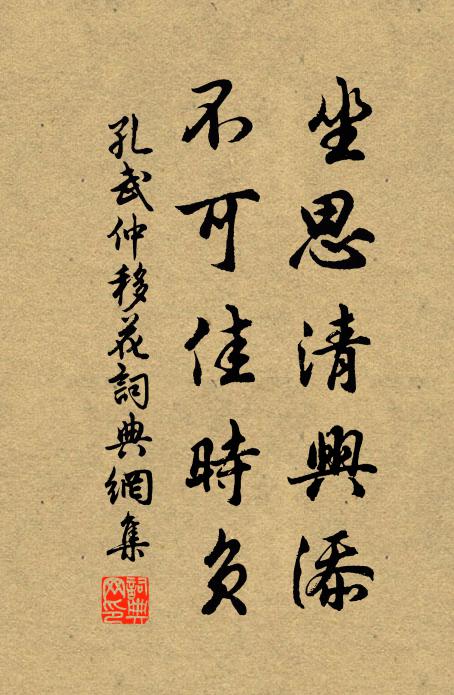 坐思清興添
不可佳時負
孔武仲移花詞典網集
詞典網印